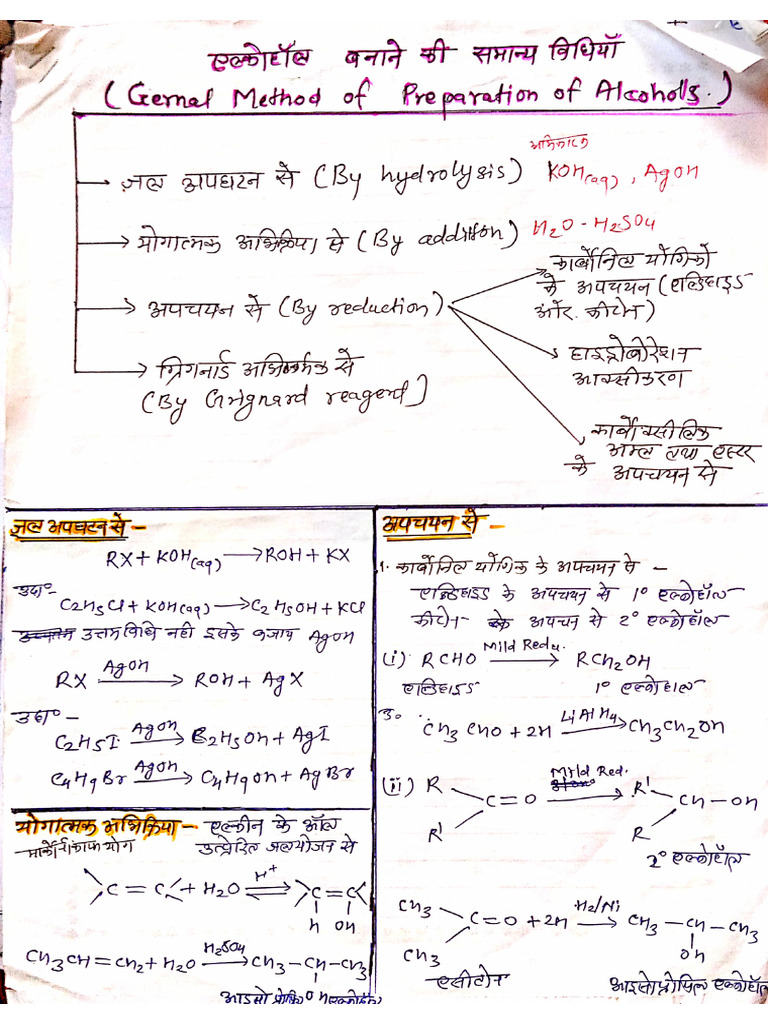 एल्कोहॉल बनाने की समान्य विधियाँ
(Gernal Method of Preparation of Alcohols.)
अभिकारक
जल अपघटन से (By hydrolysis) KOH(aq), AgOH
योगात्मक अभिक्रिया से (By addition) H2O - H2SO4
अपचयन से (By reduction)
कार्बोनिल यौगिको
के अपचयन (एल्डिहाइड
और कीटोन)
हाइड्रोबोरेशन
आक्सीकरण
कार्बोक्सीलिक
अम्ल तथा एस्टर
के अपचयन से
ग्रिगनार्ड अभिकर्मक से
(By Grignard reagent)
जल अपघटन से -
RX + KOH(aq) → ROH + KX
उदा० -
C2H5Cl + KOH(aq) → C2H5OH + KCl
उत्तम विधि नही इसके बजाय AgOH
RX AgOH → ROH + AgX
उदा० -
C2H5I AgOH → C2H5OH + AgI
C4H9Br AgOH → C4H9OH + AgBr
योगात्मक अभिक्रिया - एल्कीन के अॉल
मार्कोनीकॉफ योग उत्प्रेरित जलयोजन से
>C = C< + H2O H+ ⇌ >C = C<
H OH
CH3CH = CH2 + H2O H2SO4 → CH3 - CH - CH3
OH
आइसो प्रोपिल एल्कोहॉल
अपचयन से -
1. कार्बोनिल यौगिक के अपचयन से -
एल्डिहाइड के अपचयन से 1° एल्कोहॉल
कीटोन के अपचन से 2° एल्कोहॉल
(i) RCHO Mild Redu. → RCH2OH
एल्डिहाइड 1° एल्कोहाल
उ०
CH3CHO + 2H LiAlH4 → CH3CH2OH
(ii) R R' C = O Mild Red. → R' R CH - OH
2° एल्कोहॉल
CH3 CH3 C = O + 2H H2/Ni → CH3 - CH - CH3
OH
एसीटोन आइसोप्रोपिल एल्कोहॉल